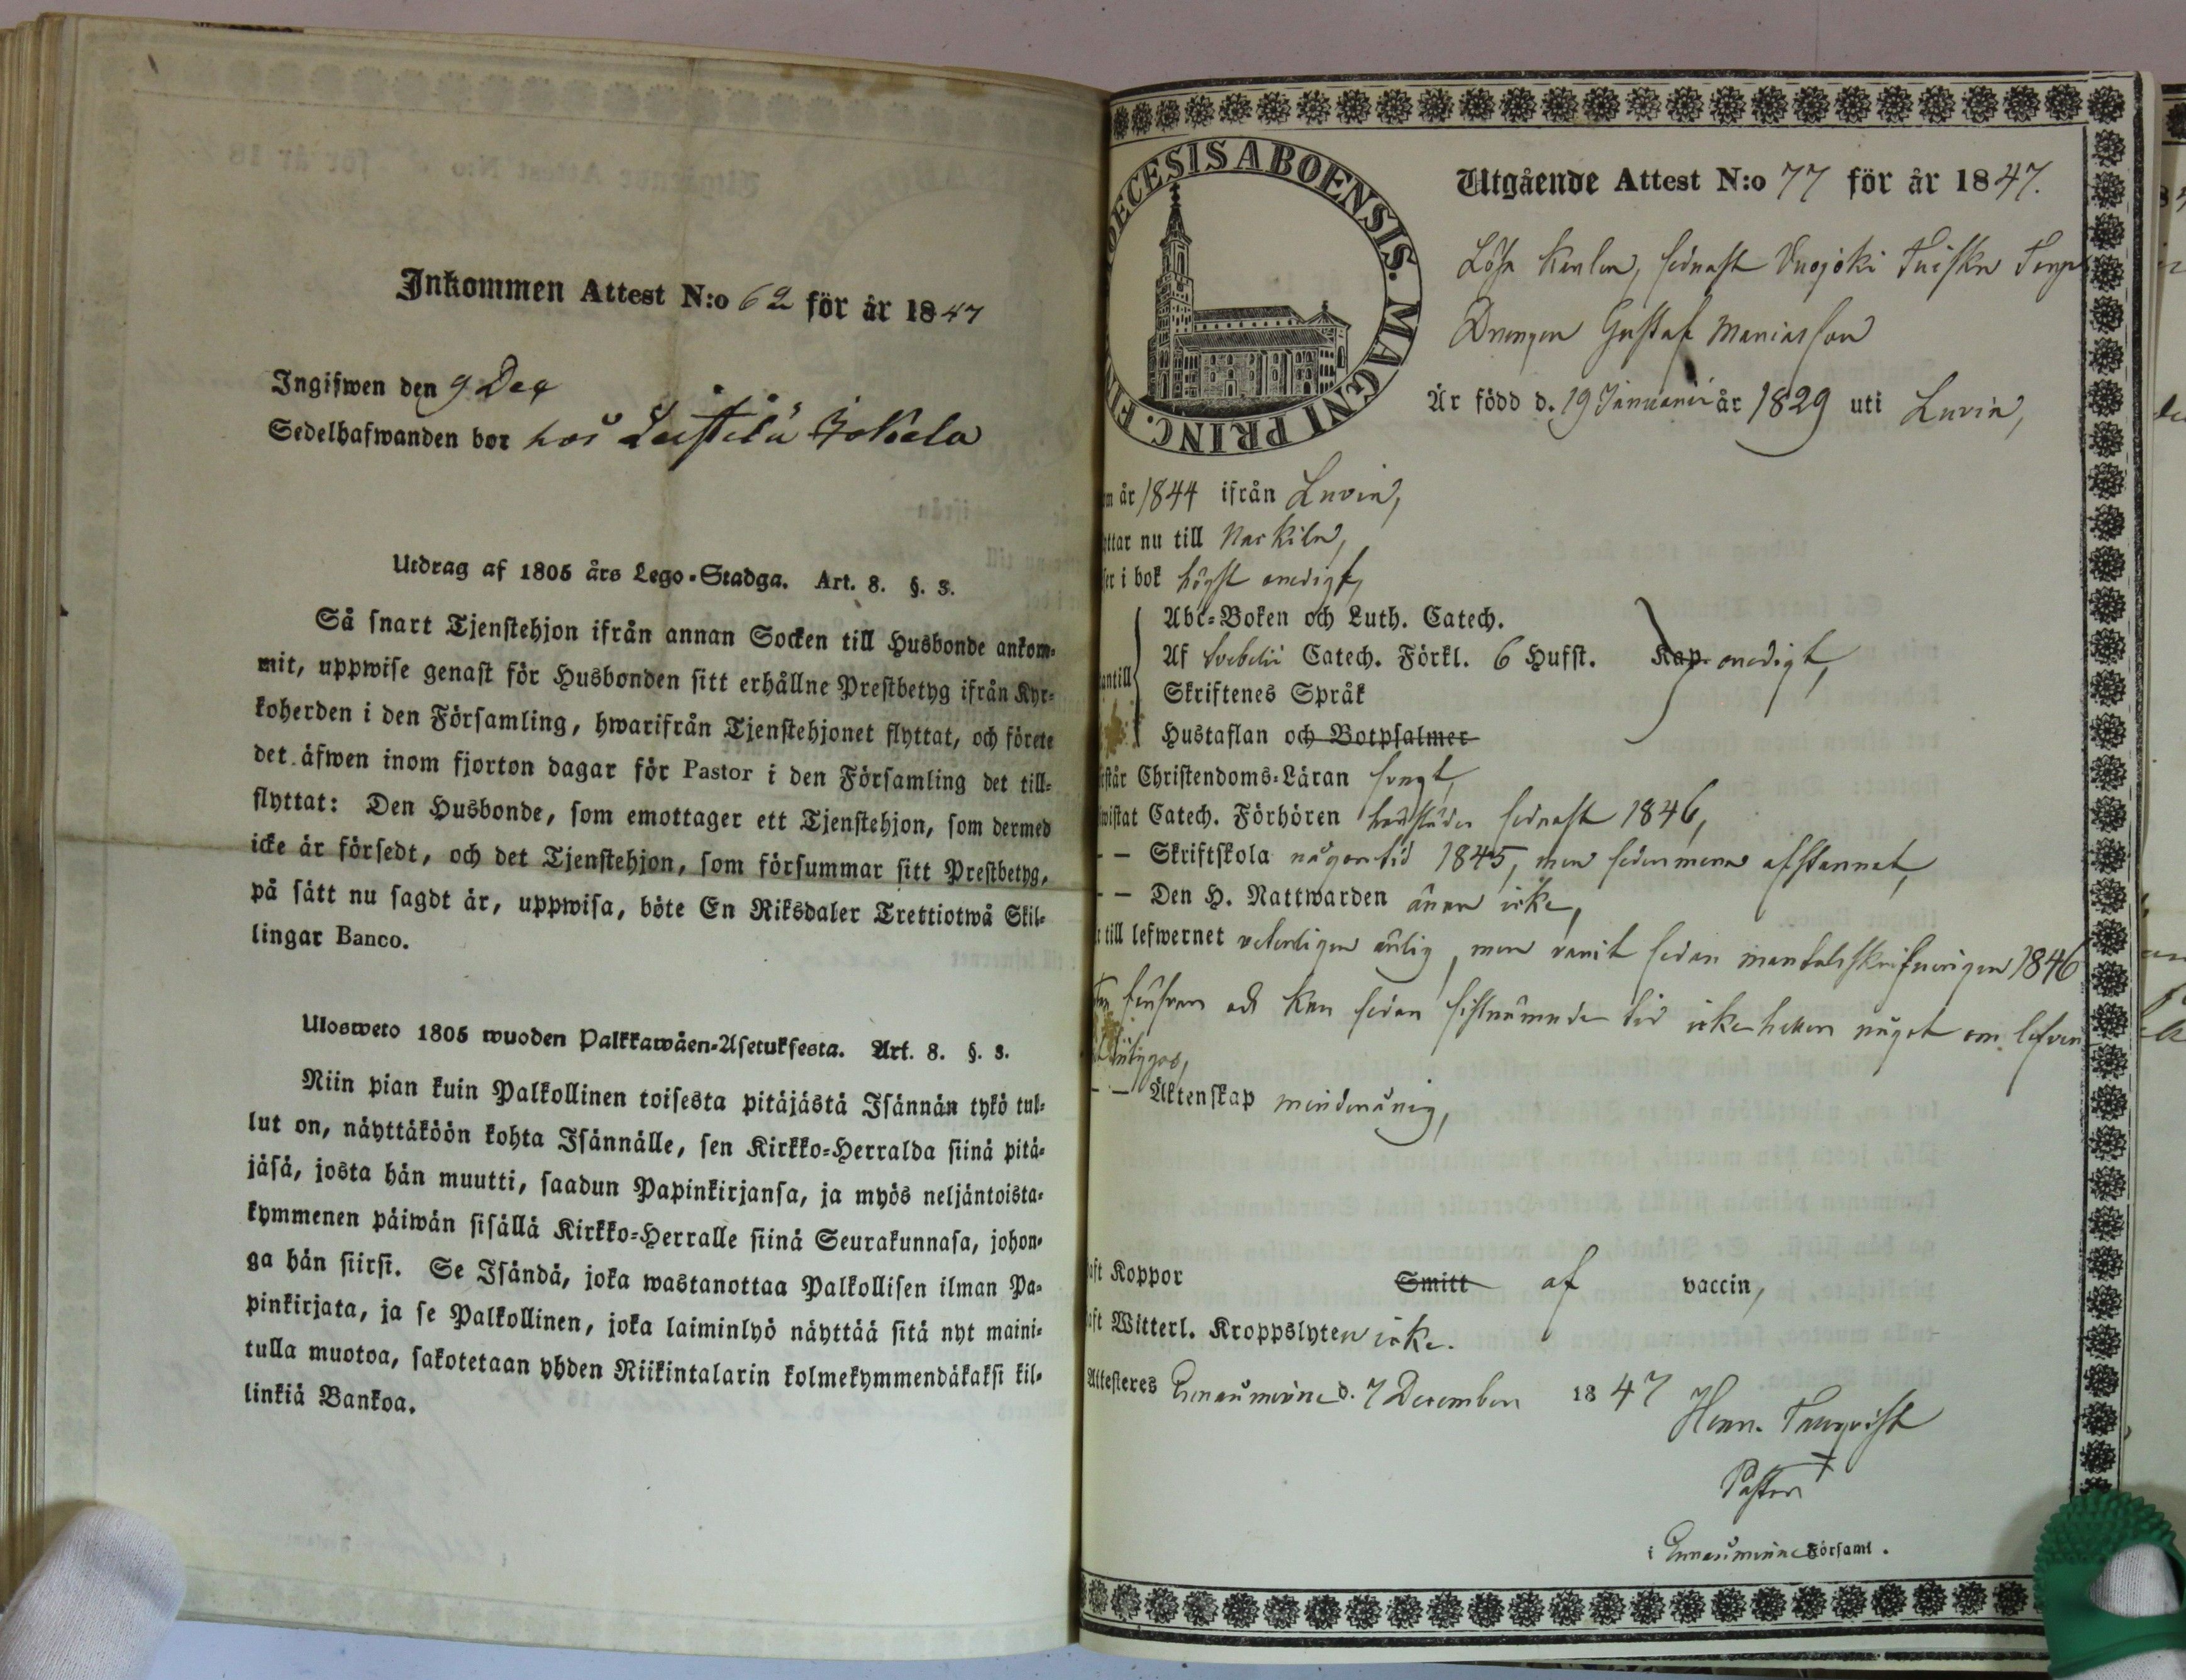 Inkommen Attest N:o 62 för år 1847
Ingifwen den 9 Dec
Sedelhafwanden bor hos Leistilä Jokela
Utdrag af 1805 års Lego-Stadga. Art. 8. §. 3.
Så snart Tjenstehjon ifrån annan Socken till Husbonde ankom-
mit, uppwise genast för Husbonden sitt erhållne Prestbetyg ifrån Kyr-
koherden i den Församling, hwarifrån Tjenstehjonet flyttat, och förete
det äfwen inom fjorton dagar för Pastor i den Församling det till-
flyttat: Den Husbonde, som emottager ett Tjenstehjon, som dermed
icke är försedt, och det Tjenstehjon, som försummar sitt Prestbetyg,
på sätt nu sagdt är, uppwisa, böte En Riksdaler Trettiotwå Skil-
lingar Banco.
Ulosweto 1805 wuoden Palkkawäen-Asetuksesta. Art. 8. §. 3.
Niin pian kuin Palkollinen toisesta pitäjästä Isännän tykö tul-
lut on, näyttäköön kohta Isännälle, sen Kirkko-Herralda siinä pitä-
jäsä, josta hän muutti, saadun Papinkirjansa, ja myös neljäntoista-
kymmenen päiwän sisällä Kirkko-Herralle siinä Seurakunnasa, johon-
ga hän siirsi. Se Isändä, joka wastanottaa Palkollisen ilman Pa-
pinkirjata, ja se Palkollinen, joka laiminlyö näyttää sitä nyt maini-
tulla muotoa, sakotetaan yhden Riikintalarin kolmekymmendäkaksi kil-
linkiä Bankoa.
DECESIS ABOENSIS. MAGNI PRINC. FIN
Utgående Attest N:o 77 för år 1847.
Lösa Karlen, sednast Vuojoki
Drengen Gustaf Mariasson
Är född d. 19 Januarii år 1829 uti Luvia,
m år 1844 ifrån Luvia,
ttar nu till Nackila,
ser i bok högst onedigt,
Abc-Boken och Luth. Catech.
Af Svebelii Catech. Förkl. 6 Hufst. Kap. onedigt,
antill Skriftenes Språk
Hustaflan och Botpsalmer
rstår Christendoms-Läran svagt,
wistat Catech. Förhören sednast 1846,
— — Skriftskola någon tid 1845, men sedermera afstannat,
— — Den H. Nattwarden ännu icke,
till lefwernet veterligen ärlig, men varit sedan mantalsskrifningen 1846
och kan sedan sistnämnde tid icke heller något om lefver
— — Äktenskap minderårig,
aft Koppor Smitt af vaccin,
aft Witterl. Kroppslyten icke.
Attesteres Euraåminne d. 7 December 1847
Pastor
i Euraåminne Församl.